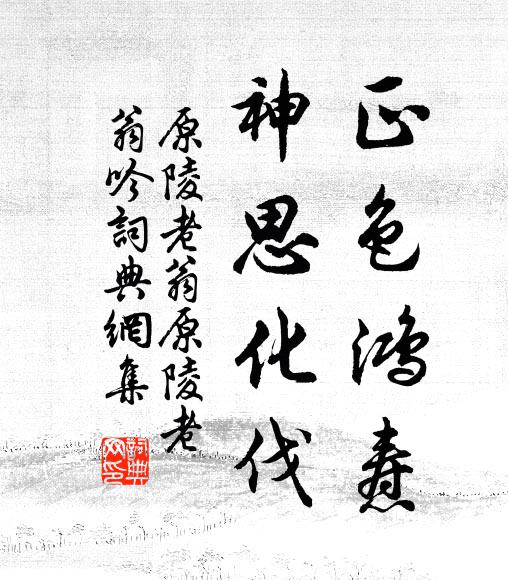 正色鸿焘
神思化伐
原陵老翁原陵老
翁吟詞典網集
詞典网印